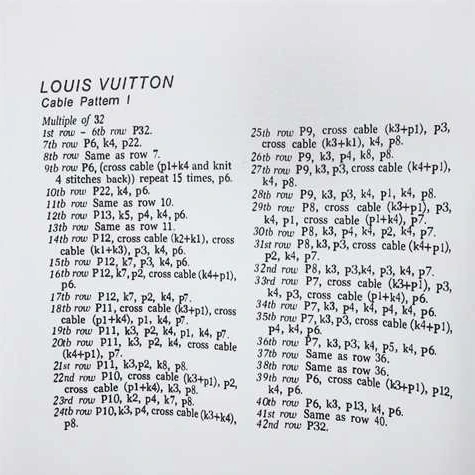 LOUIS VUITTON
Cable Pattern I
Multiple of 32
1st row - 6th row P32.
7th row P6, k4, p22.
8th row Same as row 7.
9th row P6, (cross cable (p1+k4 and knit
4 stitches back)) repeat 15 times, p6.
10th row P22, k4, p6.
11th row Same as row 10.
12th row P13, k5, p4, k4, p6.
13th row Same as row 11.
14th row P12, cross cable (k2+k1), cross
cable (k1+k3), p3, k4, p6.
15th row P12, k7, p3, k4, p6.
16th row P12, k7, p2, cross cable (k4+p1),
p6.
17th row P12, k7, p2, k4, p7.
18th row P11, cross cable (k3+p1), cross
cable (p1+k4), p1, k4, p7.
19th row P11, k3, p2, k4, p1, k4, p7.
20th row P11, k3, p2, k4, cross cable
(k4+p1), p7.
21st row P11, k3,p2, k8, p8.
22nd row P10, cross cable (k3+p1), p2,
cross cable (p1+k4), k3, p8.
23rd row P10, k2, p4, k7, p8.
24th row P10, k3, p4, cross cable (k3+k4),
p8.
25th row P9, cross cable (k3+p1), p3,
cross cable (k3+k1), k4, p8.
26th row P9, k3, p4, k8, p8.
27th row P9, k3, p3, cross cable (k4+p1),
k4, p8.
28th row P9, k3, p3, k4, p1, k4, p8.
29th row P8, cross cable (k3+p1), p3,
k4, p1, cross cable (p1+k4), p7.
30th row P8, k3, p4, k4, p2, k4, p7.
31st row P8, k3, p3, cross cable (k4+p1),
p2, k4, p7.
32nd row P8, k3, p3,k4, p3, k4, p7.
33rd row P7, cross cable (k3+p1), p3,
k4, p3, cross cable (p1+k4), p6.
34th row P7, k3, p4, k4, p4, k4, p6.
35th row P7, k3, p3, cross cable (k4+p1),
p4, k4, p6.
36th row P7, k3, p3, k4, p5, k4, p6.
37th row Same as row 36.
38th row Same as row 36.
39th row P6, cross cable (k3+p1), p12,
k4, p6.
40th row P6, k3, p13, k4, p6.
41st row Same as row 40.
42nd row P32.